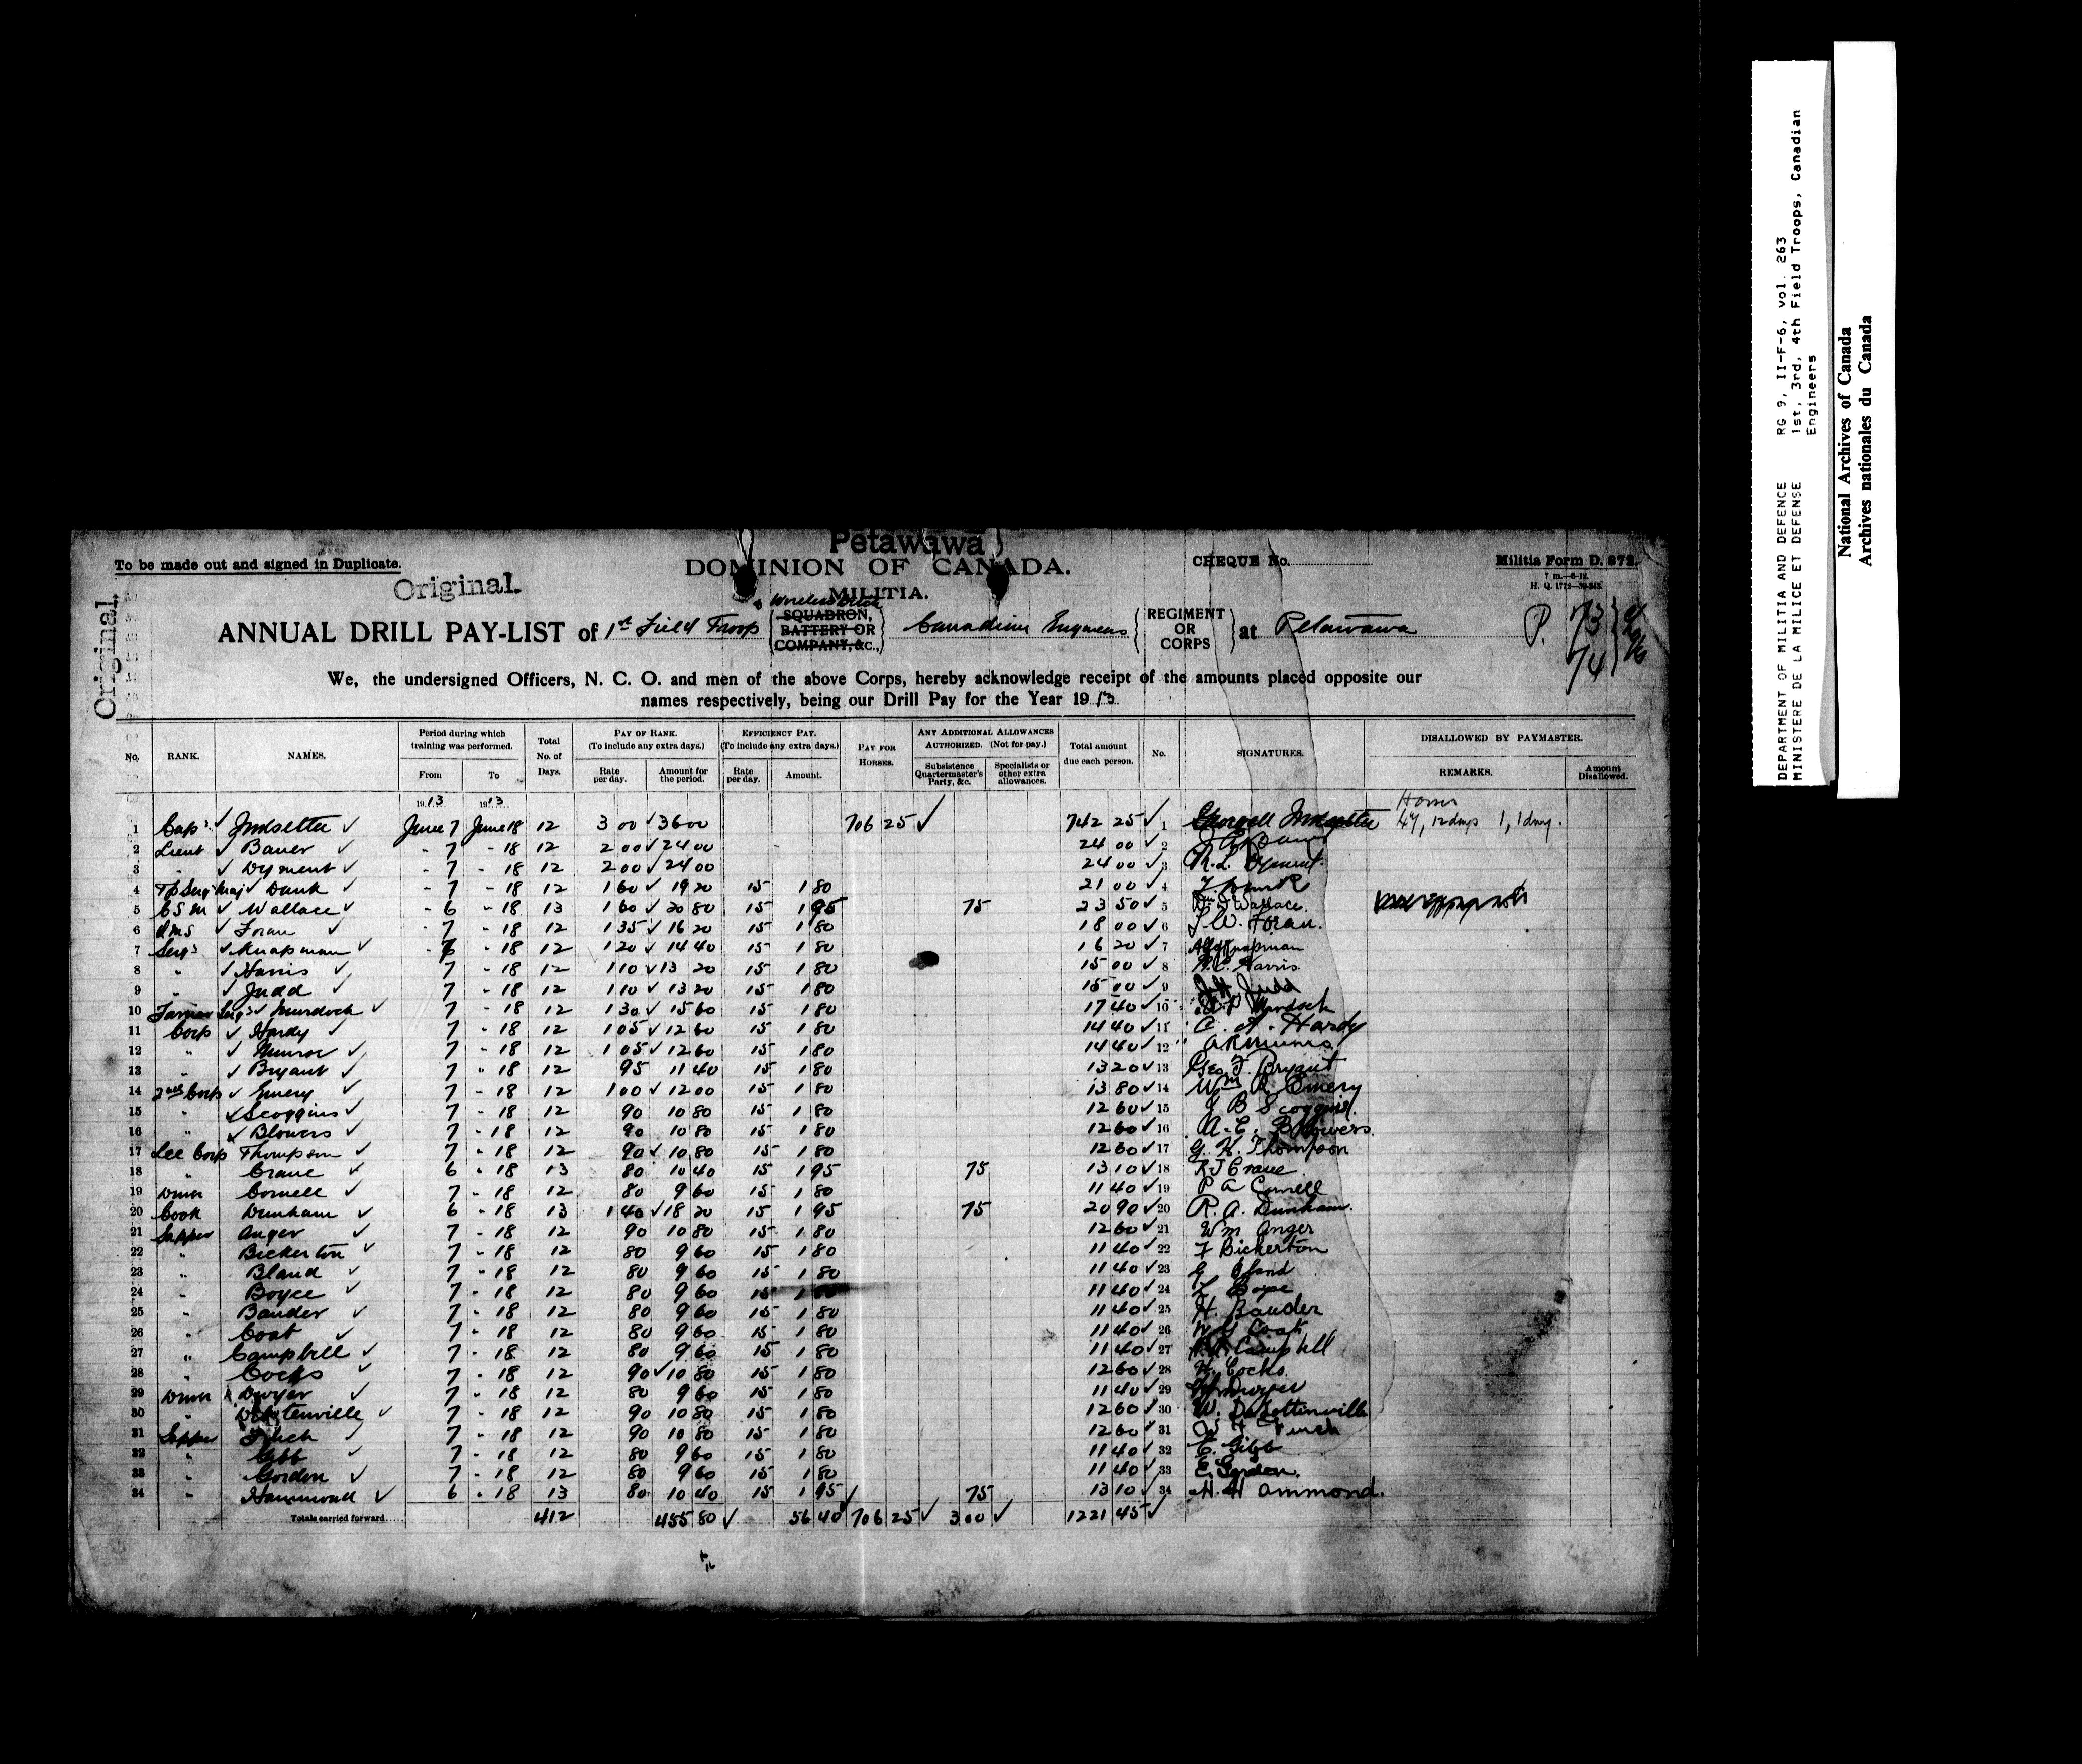 Petawawa
To be made out and signed in Duplicate.
DOMINION OF CANADA.
CHEQUE No.
Militia Form D. 872.
7 m.—6-12.
Original.
MILITIA.
H. Q. 1772—39-243.
Original.
ANNUAL DRILL PAY-LIST of 1st Field Troop SQUADRON, BATTERY OR COMPANY, &C., Canadian Engineers REGIMENT OR CORPS at Petawawa
P. 73
74
We, the undersigned Officers, N. C. O. and men of the above Corps, hereby acknowledge receipt of the amounts placed opposite our
names respectively, being our Drill Pay for the Year 1913.
No. RANK. NAMES. Period during which training was performed. From To Total No. of Days. PAY OF RANK. (To include any extra days.) Rate per day. Amount for the period. EFFICIENCY PAY. (To include any extra days.) Rate per day. Amount. PAY FOR HORSES. ANY ADDITIONAL ALLOWANCES AUTHORIZED. (Not for pay.) Subsistence Quartermaster's Party, &c. Specialists or other extra allowances. Total amount due each person. No. SIGNATURES. DISALLOWED BY PAYMASTER. REMARKS. Amount Disallowed.
1913 1913
1 Capt ✓ ✓ June 7 June 18 12 3 00 ✓ 36 00 706 25 ✓ 742 25 ✓ 1 Horses 47, 12 days 1, 1 day.
2 Lieut ✓ Bauer ✓ - 7 - 18 12 2 00 ✓ 24 00 24 00 ✓ 2
3 " ✓ Dyment ✓ - 7 - 18 12 2 00 ✓ 24 00 24 00 ✓ 3 R. L. Dyment.
4 Tp Sergt Maj ✓ Dunk ✓ - 7 - 18 12 1 60 ✓ 19 20 15 1 80 21 00 ✓ 4
5 CSM ✓ Wallace ✓ - 6 - 18 13 1 60 ✓ 20 80 15 1 95 75 23 50 ✓ 5 Wallace.
6 QMS ✓ Foran ✓ - 7 - 18 12 1 35 ✓ 16 20 15 1 80 18 00 ✓ 6 W. Foran.
7 Sergt ✓ Knapman ✓ - 7 - 18 12 1 20 ✓ 14 40 15 1 80 16 20 ✓ 7 Knapman
8 " ✓ Harris ✓ 7 - 18 12 1 10 ✓ 13 20 15 1 80 15 00 ✓ 8 Harris
9 " ✓ Judd ✓ 7 - 18 12 1 10 ✓ 13 20 15 1 80 15 00 ✓ 9 Judd
10 Farrier Sergt ✓ Murdoch ✓ 7 - 18 12 1 30 ✓ 15 60 15 1 80 17 40 ✓ 10 Murdoch
11 Corp ✓ Hardy ✓ 7 - 18 12 1 05 ✓ 12 60 15 1 80 14 40 ✓ 11 Hardy
12 " ✓ Munroe ✓ 7 - 18 12 1 05 ✓ 12 60 15 1 80 14 40 ✓ 12
13 " ✓ Bryant ✓ 7 - 18 12 95 11 40 15 1 80 13 20 ✓ 13 Geo. F. Bryant
14 2nd Corp ✓ Emery ✓ 7 - 18 12 1 00 ✓ 12 00 15 1 80 13 80 ✓ 14 Wm R. Emery
15 " ✓ Scoggins ✓ 7 - 18 12 90 10 80 15 1 80 12 60 ✓ 15 B Scoggins.
16 " ✓ Blowers ✓ 7 - 18 12 90 10 80 15 1 80 12 60 ✓ 16 A. E. Blowers.
17 Lce Corp Thompson ✓ 7 - 18 12 90 ✓ 10 80 15 1 80 12 60 ✓ 17 G. H. Thompson
18 " Crane ✓ 6 - 18 13 80 10 40 15 1 95 75 13 10 ✓ 18 R J Crane
19 Drvr Cornell ✓ 7 - 18 12 80 9 60 15 1 80 11 40 ✓ 19 P A Cornell
20 Cook Dunham ✓ 6 - 18 13 1 40 ✓ 18 20 15 1 95 75 20 90 ✓ 20 R. A. Dunham.
21 Sapper Anger ✓ 7 - 18 12 90 10 80 15 1 80 12 60 ✓ 21 Wm Anger
22 " Bickerton ✓ 7 - 18 12 80 9 60 15 1 80 11 40 ✓ 22 F Bickerton
23 " Bland ✓ 7 - 18 12 80 9 60 15 1 80 11 40 ✓ 23 G Bland
24 " Boyce ✓ 7 - 18 12 80 9 60 15 1 80 11 40 ✓ 24 L Boyce
25 " Bauder ✓ 7 - 18 12 80 9 60 15 1 80 11 40 ✓ 25 H. Bauder
26 " Coat ✓ 7 - 18 12 80 9 60 15 1 80 11 40 ✓ 26 Coat
27 " Campbell ✓ 7 - 18 12 80 9 60 15 1 80 11 40 ✓ 27 Campbell
28 " Cocks ✓ 7 - 18 12 90 ✓ 10 80 15 1 80 12 60 ✓ 28 H. Cocks.
29 Drvr Dwyer ✓ 7 - 18 12 80 9 60 15 1 80 11 40 ✓ 29 Dwyer
30 " ✓ 7 - 18 12 90 10 80 15 1 80 12 60 ✓ 30 W.
31 Sapper Finch ✓ 7 - 18 12 90 10 80 15 1 80 12 60 ✓ 31 W H Finch
32 " Gibb ✓ 7 - 18 12 80 9 60 15 1 80 11 40 ✓ 32 E. Gibb
33 " Gordon ✓ 7 - 18 12 80 9 60 15 1 80 11 40 ✓ 33 E. Gordon.
34 " Hammond ✓ 6 - 18 13 80 10 40 15 1 95 75 13 10 ✓ 34 H. Hammond.
Totals carried forward 412 455 80 ✓ 56 40 ✓ 706 25 ✓ 3 00 ✓ 1221 45 ✓
DEPARTMENT OF MILITIA AND DEFENCE RG 9, II-F-6, vol. 263
MINISTERE DE LA MILICE ET DEFENSE 1st, 3rd, 4th Field Troops, Canadian
Engineers
National Archives of Canada
Archives nationales du Canada